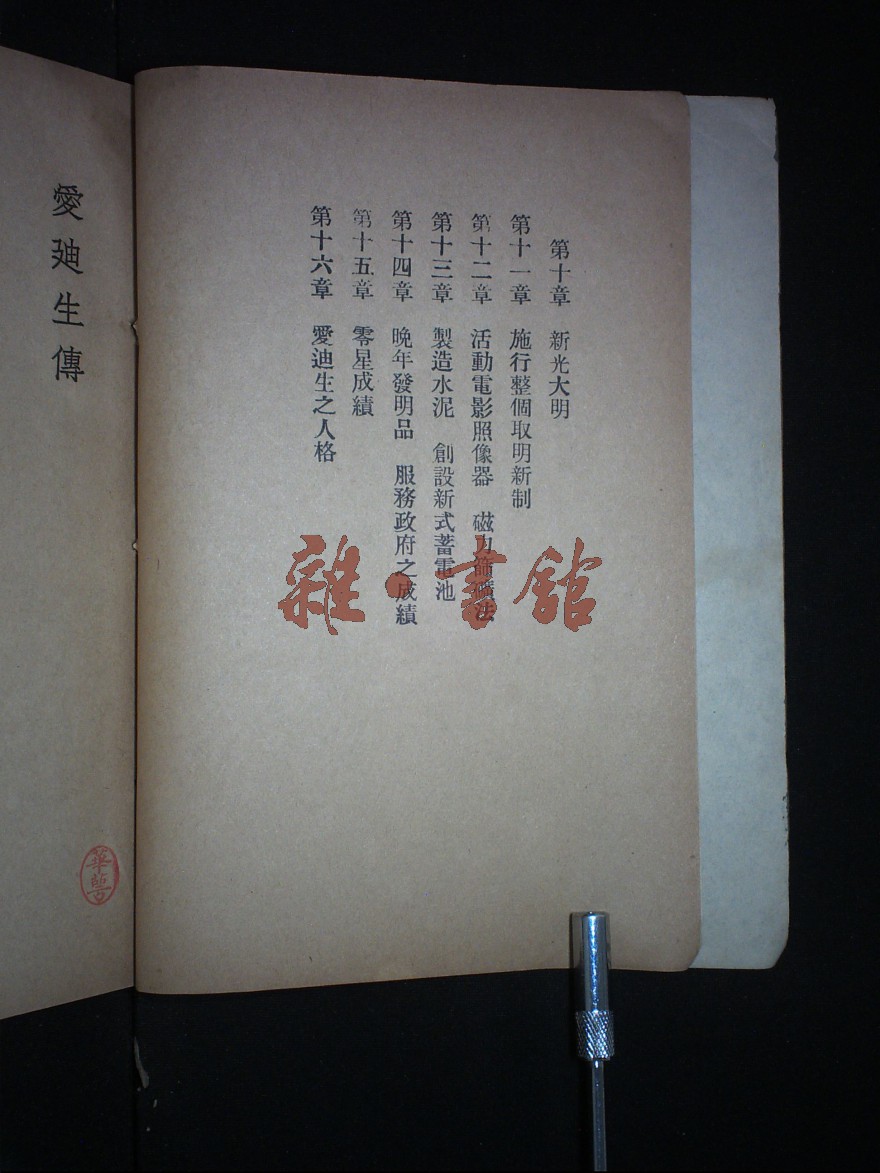 第十章　新光大明
第十一章　施行整個取明新制
第十二章　活動電影照像器　磁力篩礦法
第十三章　製造水泥　創設新式蓄電池
第十四章　晚年發明品　服務政府之成績
第十五章　零星成績
第十六章　愛迪生之人格
愛廸生傳
雜·書館